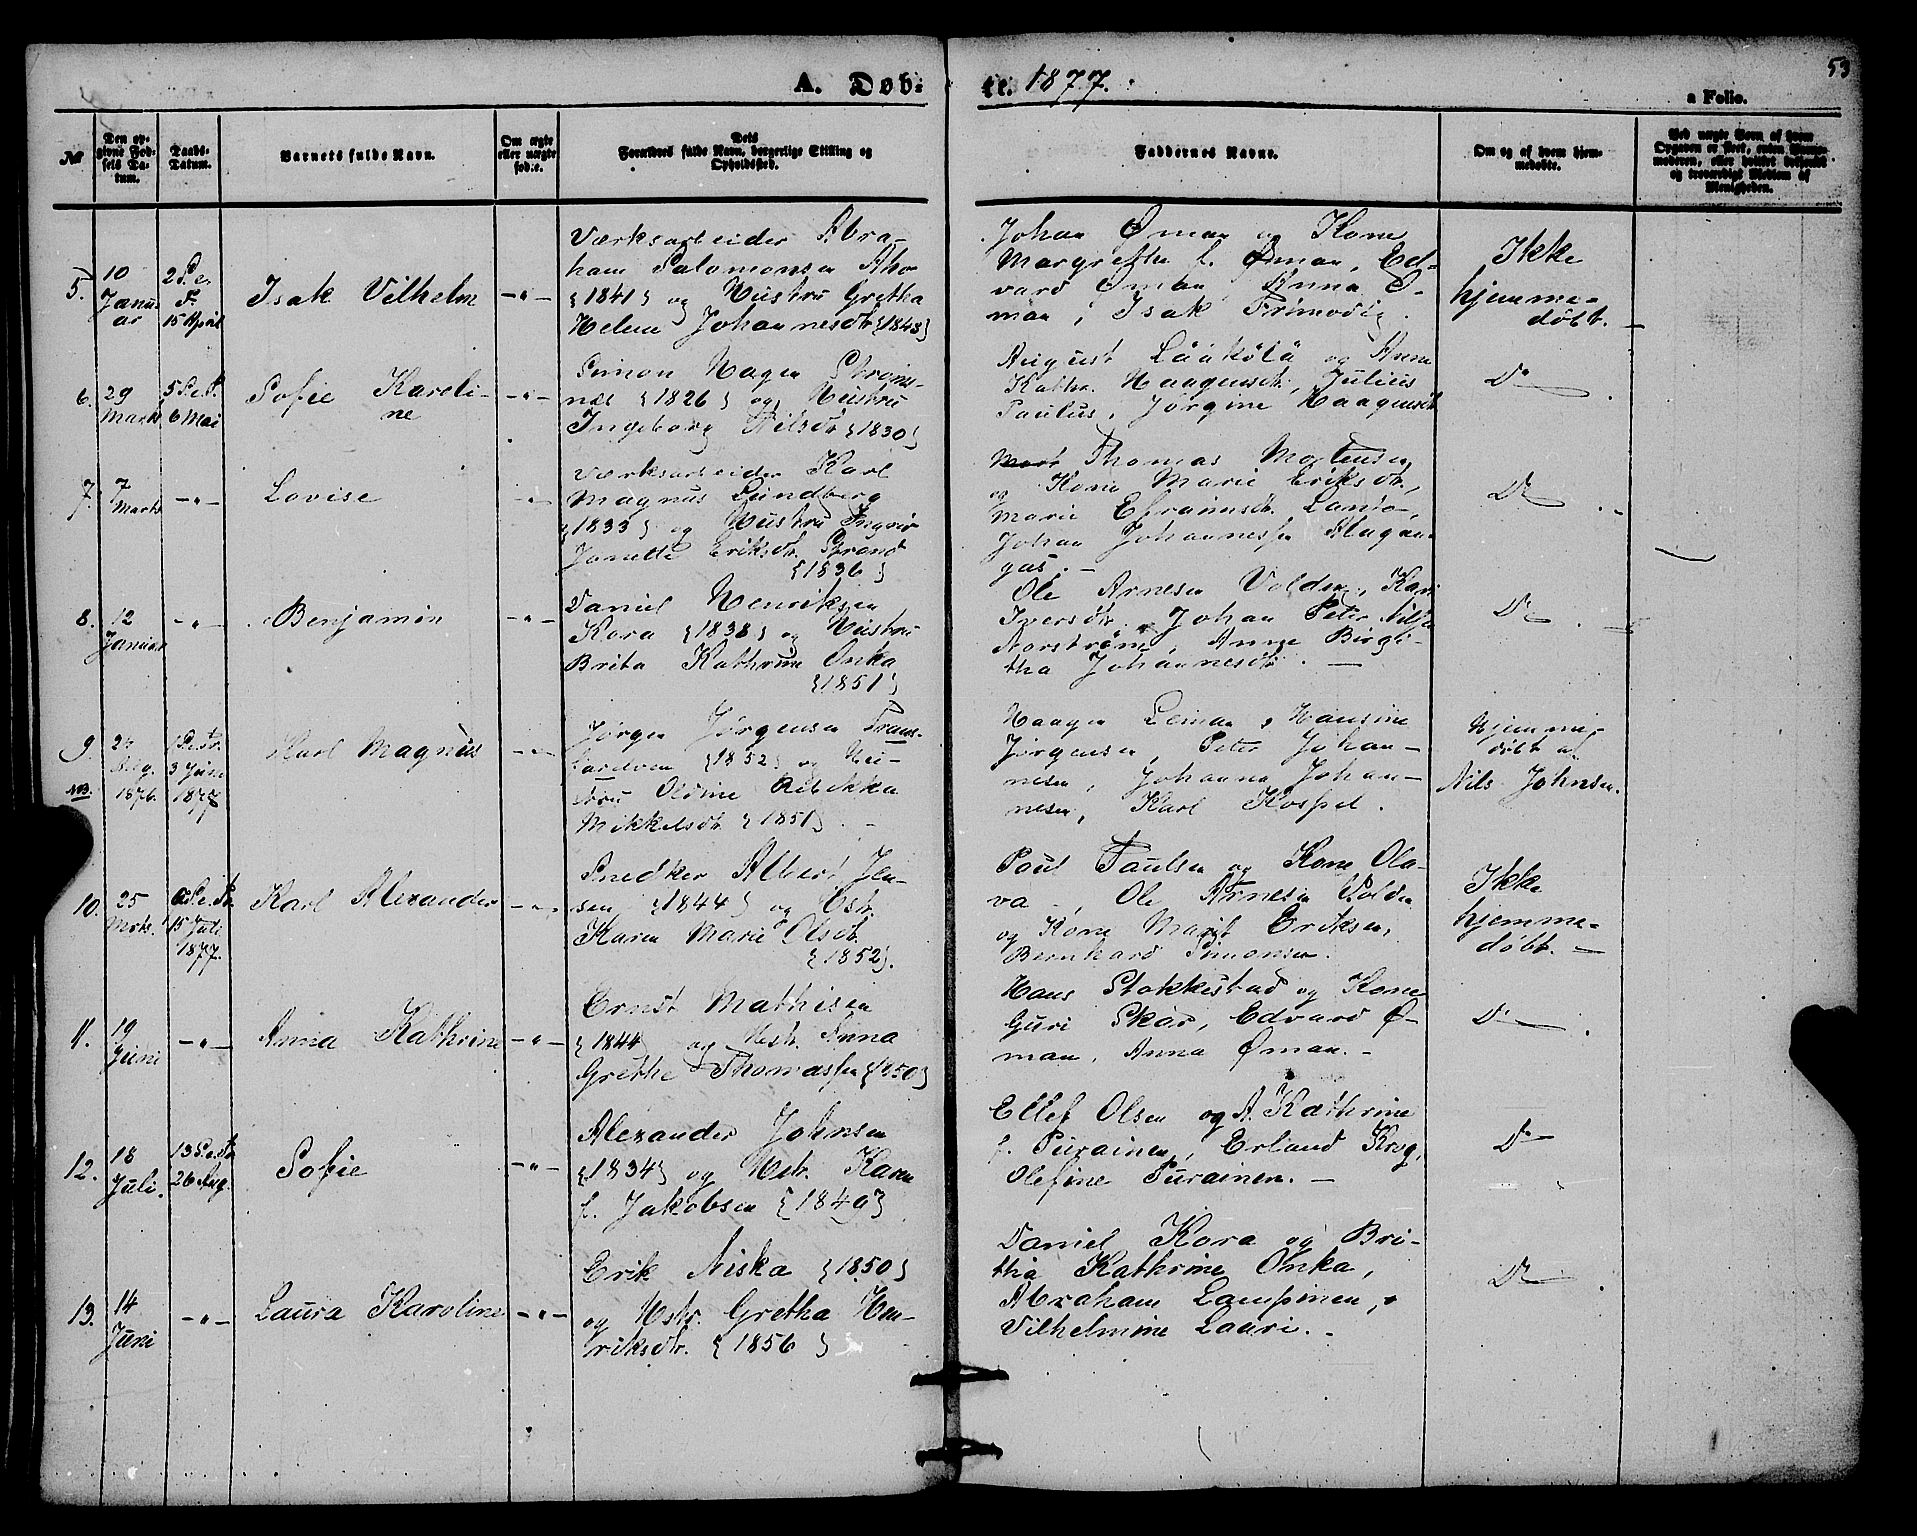 A. Døb-
te. 1877.
53
a Folio.
№
Den op-
givne Fød-
sels Da-
tum.
Daabs-
Datum.
Barnets fulde Navn.
Om ægte
eller uægte
fød:e.
Dets
Forældres fulde Navn, borgerlige Stilling og
Opholdssted.
Faddernes Navne.
Om og af hvem hjem-
medøbte.
Ved uægte Børn af hvem
Opgaven er skeet, enten Barne-
moderen, eller hvilket bekjendt
og troværdigt Medlem af
Menigheden.
5.
10
Janu-
ar
2 S. e.
P.
15 April
Isak Vilhelm
-"-
Værksarbeider Abra-
ham Salomonsen Aho
{1841} og Hustru Gretha
Helene Johannesdtr {1843}
Johan Øman og Kone
Margrethe f. Øman, Ed-
vard Øman, Anna Ø-
man, Isak Frimodig.
Ikke
hjemme-
døbt.
6.
29
Marts
5 S. e. P.
6 Mai
Sofie Karoli-
ne
-"-
Simon Hagen Strøms-
næs {1826} og Hustru
Ingeborg Nilsdtr {1830}
August Lääkölä og Anne
Kathr. Haagensdtr, Julius
Paulus, Jørgine Haagensdtr
Do
7.
7
Marts
-"-
Lovise
-"-
Værksarbeider Karl
Magnus Lundberg
{1833} og Hustru Ingrir
Janette Eriksdtr. Strand
{1836}
Thomas Mortensen
og Kone Marie Eriksdtr,
Marie Efraimsdtr. Lanto,
Johan Johannessen Alagan-
gas.
Do
8.
12
Januar
-"-
Benjamin
-"-
Daniel Henriksen
Kora {1838} og Hustru
Brita Kathrine Onka
{1851}
Ole Arnesen Volden, Kari
Iversdtr. Johan Peter Nilsen
Norstrøm, Anne Birgi-
tha Johannesdtr.
Do
9.
NB.
24
Aug.
1876.
1 S. e. Tr.
3 Juni
1877
Karl Magnus
-"-
Jørgen Jørgensen Frans-
{1852} og Hu-
stru Oldine Rebekka
Mikkelsdtr {1851}.
Haagen Leman, Hansine
Jørgensen, Peter Johan-
nesen, Johanna Johan-
nesen, Karl Kospel.
Hjemme-
døbt af
Nils Johnsen.
10.
25
Mrts.
6 S. e. Tr.
15 Juli
1877.
Karl Alexander
-"-
Snedker Albert Jen-
sen {1844} og Hst.
Karen Marie Olsdtr.
{1852}.
Poul Paulsen og Kone Ola-
va, Ole Arnesen Volden
og Kone Marit Eriksen,
Bernhard Simonsen.
Ikke
hjemme-
døbt.
11.
19
Juni
-"-
Anna Kathrine
-"-
Ernst Mathisen
{1844} og Hstr. Anna
Grethe Thomassen {1850}
Hans Stokkestad og Kone
Guri Skar, Edvard Ø-
man, Anna Øman.
Do
12.
18
Juli.
13 S. e. Tr.
26 Aug.
Sofie
-"-
Alexander Johnsen
{1834} og Hstr. Karen
f. Jakobsen {1840}
Ellef Olsen og A. Kathrine
f. Purainen, Erland Krog,
Olefine Purainen.
Do
13.
14
Juni
-"-
Laura Karoline
-"-
Erik Niska {1850}
og Hstr. Gretha Hen-
riksdtr. {1856}
Daniel Kora og Bri-
tha Kathrine Onka,
Abraham Lampinen,
Vilhelmine Lauri.
Do